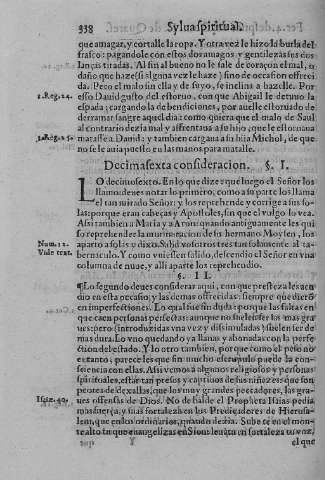 338 Sylua spiritual.
que amagar, y cortalle la ropa. Y otra vez le hizo la burla del
frasco: pagandole con estos dos amagos y gentilezas sus dos
lanças tiradas. Al fin al bueno no le sale de coraçon el mal,
daño que haze (si alguna vez le haze) sino de ocasion offreci-
da. Pero el malo sin ella y de suyo, se inclina a hazelle. Por
1.Reg.24. esso Dauid gusto del estoruo, con que Abigail le detuuo la
espada; cargandola de bendiciones, por auelle estoruado de
derramar sangre aquel dia: como quiera que el malo de Saul
al contrario dezia mal y affrentaua a su hijo, que le estoruaua
1.Reg.25. matasse a Dauid: y tambien cargaua a su hija Michol, de que
no se le auia puesto en las manos para matalle.
Decimasexta consideracion. §. I.
LO decimosexto. En lo que dize que luego el Señor los
llamo deues notar lo primero, como a su parte los llama
el tan mirado Señor: y los reprehende y corrige a sus so-
las: porque eran cabeças y Apostoles, sin que el vulgo lo vea.
Assi tambien a Maria y a Aron quando antiguamente les qui
so reprehender la murmuracion de su hermano Moysen, los
Num.12. aparto a solas y dixo. Subid vosotros tres tan solamente al ta-
Vide trat. bernaculo. Y como vuiessen salido, descendio el Señor en vna
columna de nuue, y alli aparte los reprehendio.
§. I I.
¶Lo segundo deues considerar aqui, con que presteza le xacun
dio en esta pecaño, y las demas offrecidas: siempre que dierō
en imperfectiones. Lo qual fue sin duda: porque las faltas en
que caen personas perfectas: aunque no suelen ser las mas gra
ues: pero (introduzidas vna vez y dissimuladas) suelen ser de
mas dura. Lo vno quedando ya llanas y abonadas con la perfe
ction del estado. Y lo otro tambien, porque como el peso no
es tanto, parece les que sin mucho escrupulo puede la con-
sciencia con ellas. Assi vemos a algunos religiosos y personas
spirituales, estar tan presos y captiuos de sus niñezes que son
peores de dexallas, que los muy grandes peccadores, las gra-
Isaiæ.40. ues offensas de Dios. No de balde el Propheta Isaias pedia
mas fuerça, y mas fortaleza en los Predicadores de Hierusa-
lem, que en otros ordinarios, quando dezia. Sube te en el mon-
te alto tu que euangelizas en Sion: leuanta en fortaleza tu voz,
Y el que